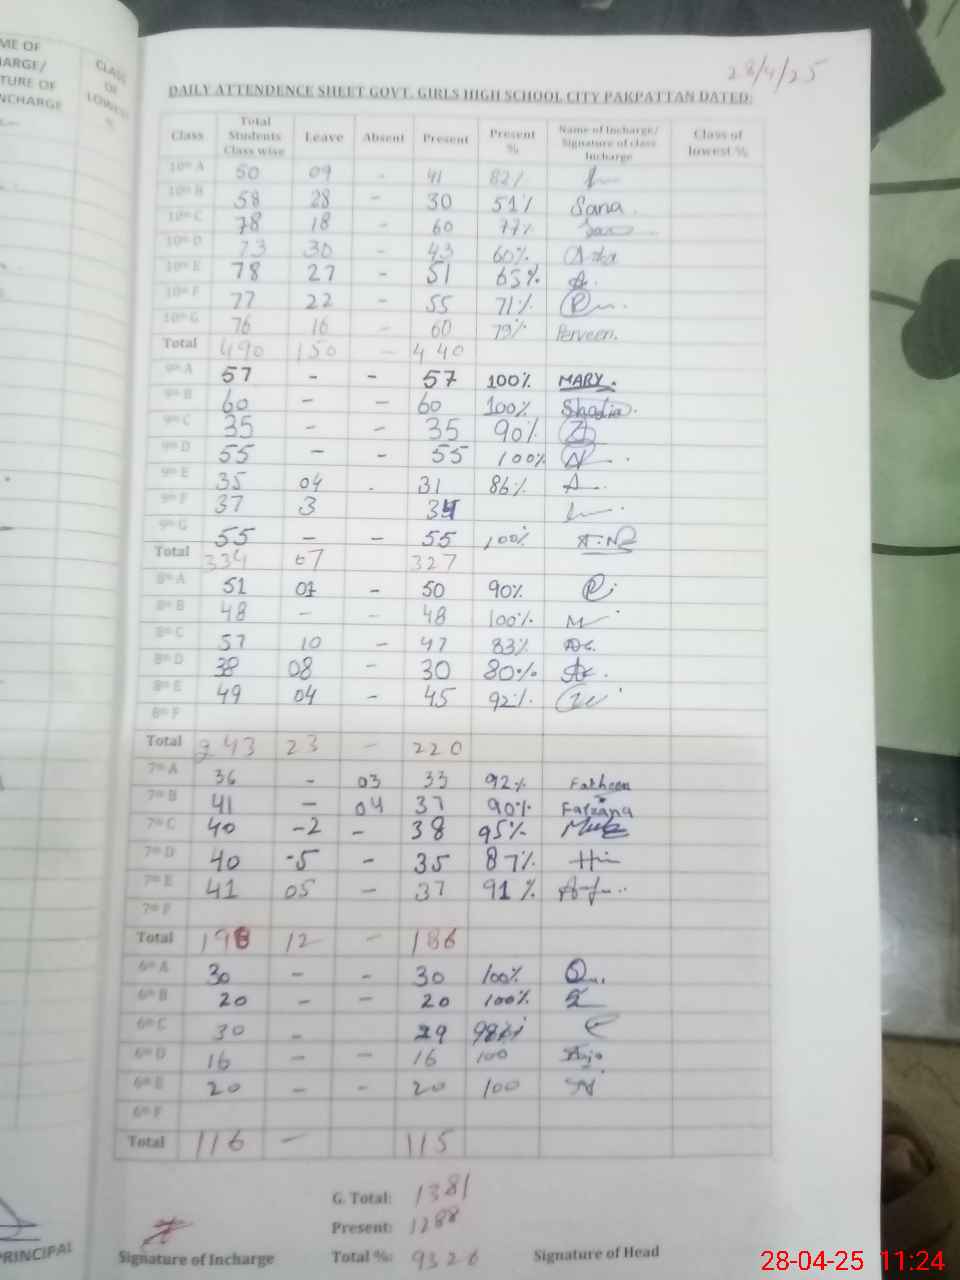 ME OF
HARGE/
TURE OF
NCHARGE
CLASS
OF
LOWEST
%
28/4/25
DAILY ATTENDENCE SHEET GOVT. GIRLS HIGH SCHOOL CITY PAKPATTAN DATED:
Class Total Students Class wise Leave Absent Present Present % Name of Incharge/ Signature of class Incharge Class of lowest %
10th A 50 09 - 41 82%
10th B 58 28 - 30 51% Sana
10th C 78 18 - 60 77%
10th D 73 30 - 43 60%
10th E 78 27 - 51 65%
10th F 77 22 - 55 71%
10th G 76 16 - 60 79% Perveen.
Total 490 150 - 440
9th A 57 - - 57 100% MARY.
9th B 60 - - 60 100% Shadia.
9th C 35 - - 35 90%
9th D 55 - - 55 100%
9th E 35 04 . 31 86%
9th F 37 3 34
9th G 55 - - 55 100%
Total 334 07 327
8th A 51 01 - 50 90%
8th B 48 - - 48 100%
8th C 57 10 - 47 83%
8th D 38 08 - 30 80%
8th E 49 04 - 45 92%
8th F
Total 243 23 - 220
7th A 36 - 03 33 92%
7th B 41 - 04 37 90% Farzana
7th C 40 -2 - 38 95%
7th D 40 -5 - 35 87%
7th E 41 05 - 37 91%
7th F
Total 198 12 - 186
6th A 30 - - 30 100%
6th B 20 - - 20 100%
6th C 30 - 29
6th D 16 - - 16 100
6th E 20 - - 20 100
6th F
Total 116 - 115
G. Total: 1381
Present: 1288
Total %: 9326
Signature of Incharge
Signature of Head
PRINCIPAL
28-04-25 11:24